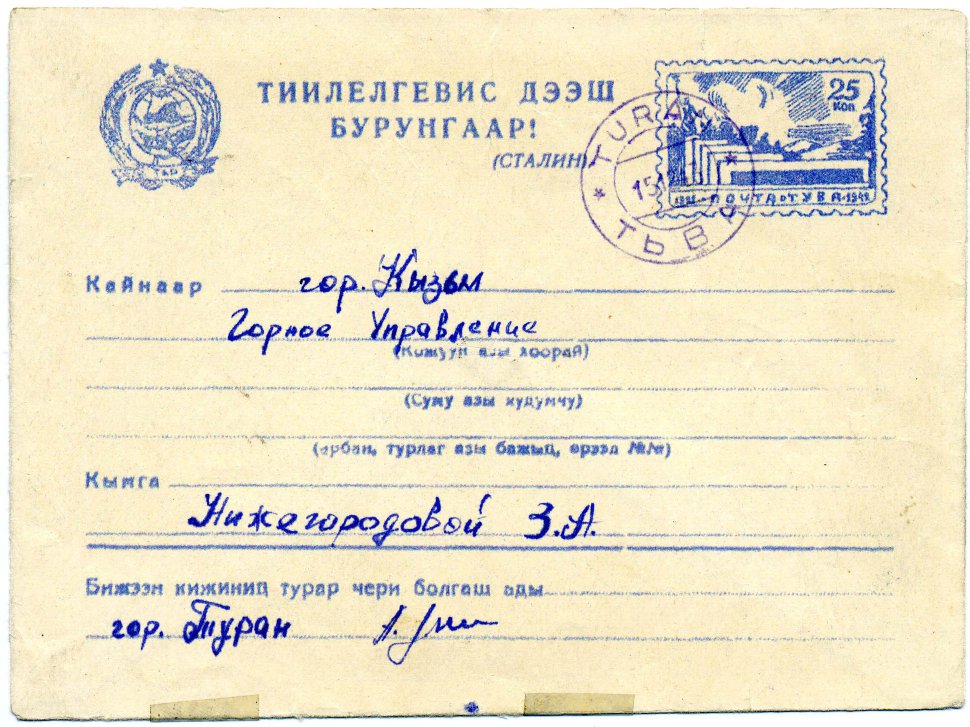 ТИИЛЕЛГЕВИС ДЭЭШ
БУРУНГААР!
(СТАЛИН)
25
КОП
ПОЧТА ТУВА
TURAN
15
TЬBA
ТАР
Кайнаар гор. Кызыл
Горное Управление
(Кожуун азы хоорай)
(Суму азы кудумчу)
(арбан, турлаг азы бажың, өрээл №/№)
Кымга
Нижегородовой З.А.
Бижээн кижиниң турар чери болгаш ады
гор. Туран